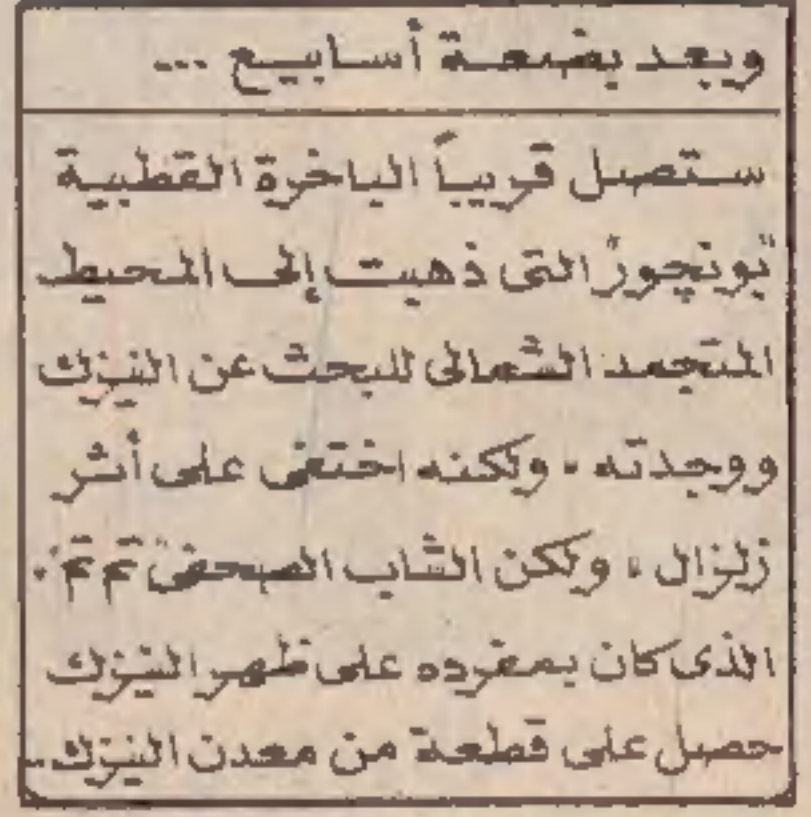 وبعد بضعة أسابيع ...
ستصل قريباً الباخرة القطبية
"بونچور" التى ذهبت إلى المحيط
المتجمد الشمالى للبحث عن النيزك
ووجدته . ولكنه اختفى على أثر
زلزال . ولكن الشاب الصحفى "تم تم" .
الذى كان بمفرده على ظهر النيزك
حصل على قطعة من معدن النيزك ..